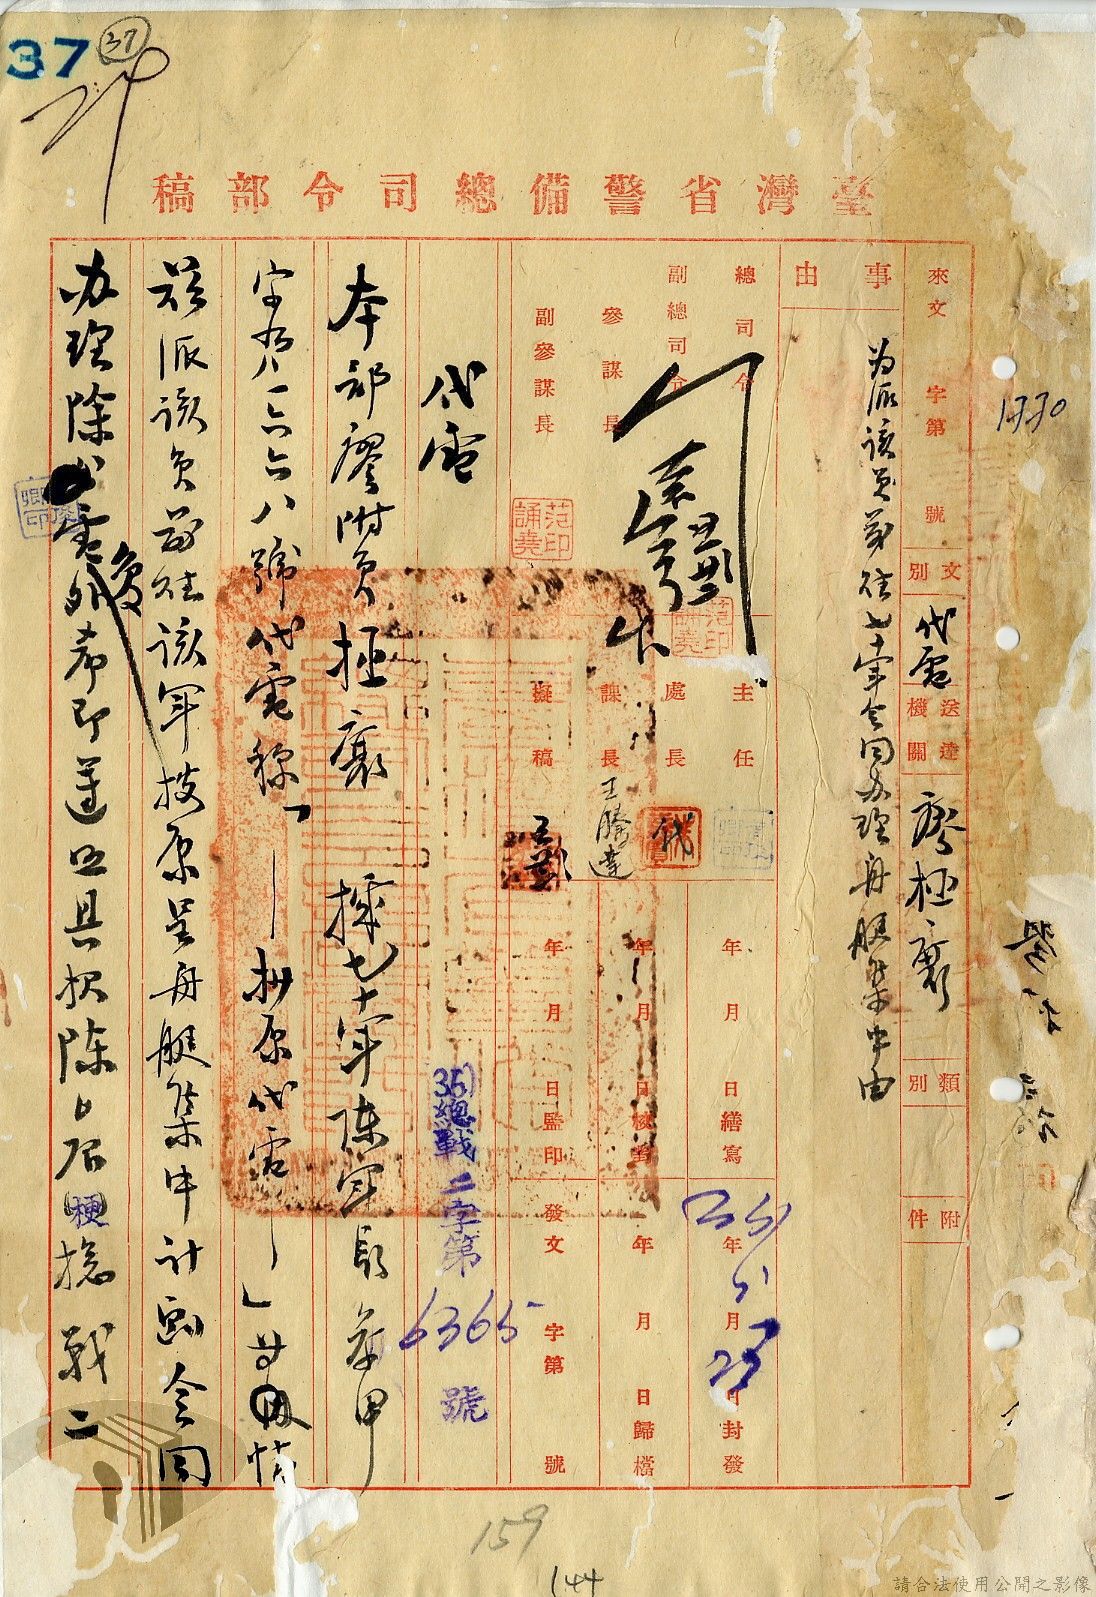 37
37
臺灣省警備總司令部稿
1770
來文 字第 號
文別 代電
送達機關 廖極襄
類別
附件
事由
為派該員前往七十軍會同辦理舟艇集中由
總司令
副總司令
參謀長
副參謀長
范印誦堯
主任
處長 代
課長 王騰達
擬稿
年 月 日繕寫
年 月 日校對
年 月 日監印
年 月 日封發
年 月 日歸檔
發文 字第 號
35)總戰二字第6365號
代電
本部廖附員極襄 據七十軍陳軍長 甲
字第一六六八號代電稱「—抄原代電—」等情
茲派該員前往該軍按原呈舟艇集中計画会同
办理除 電復外希即遵 具报陈 梗 總戰二
159
144
請合法使用公開之影像